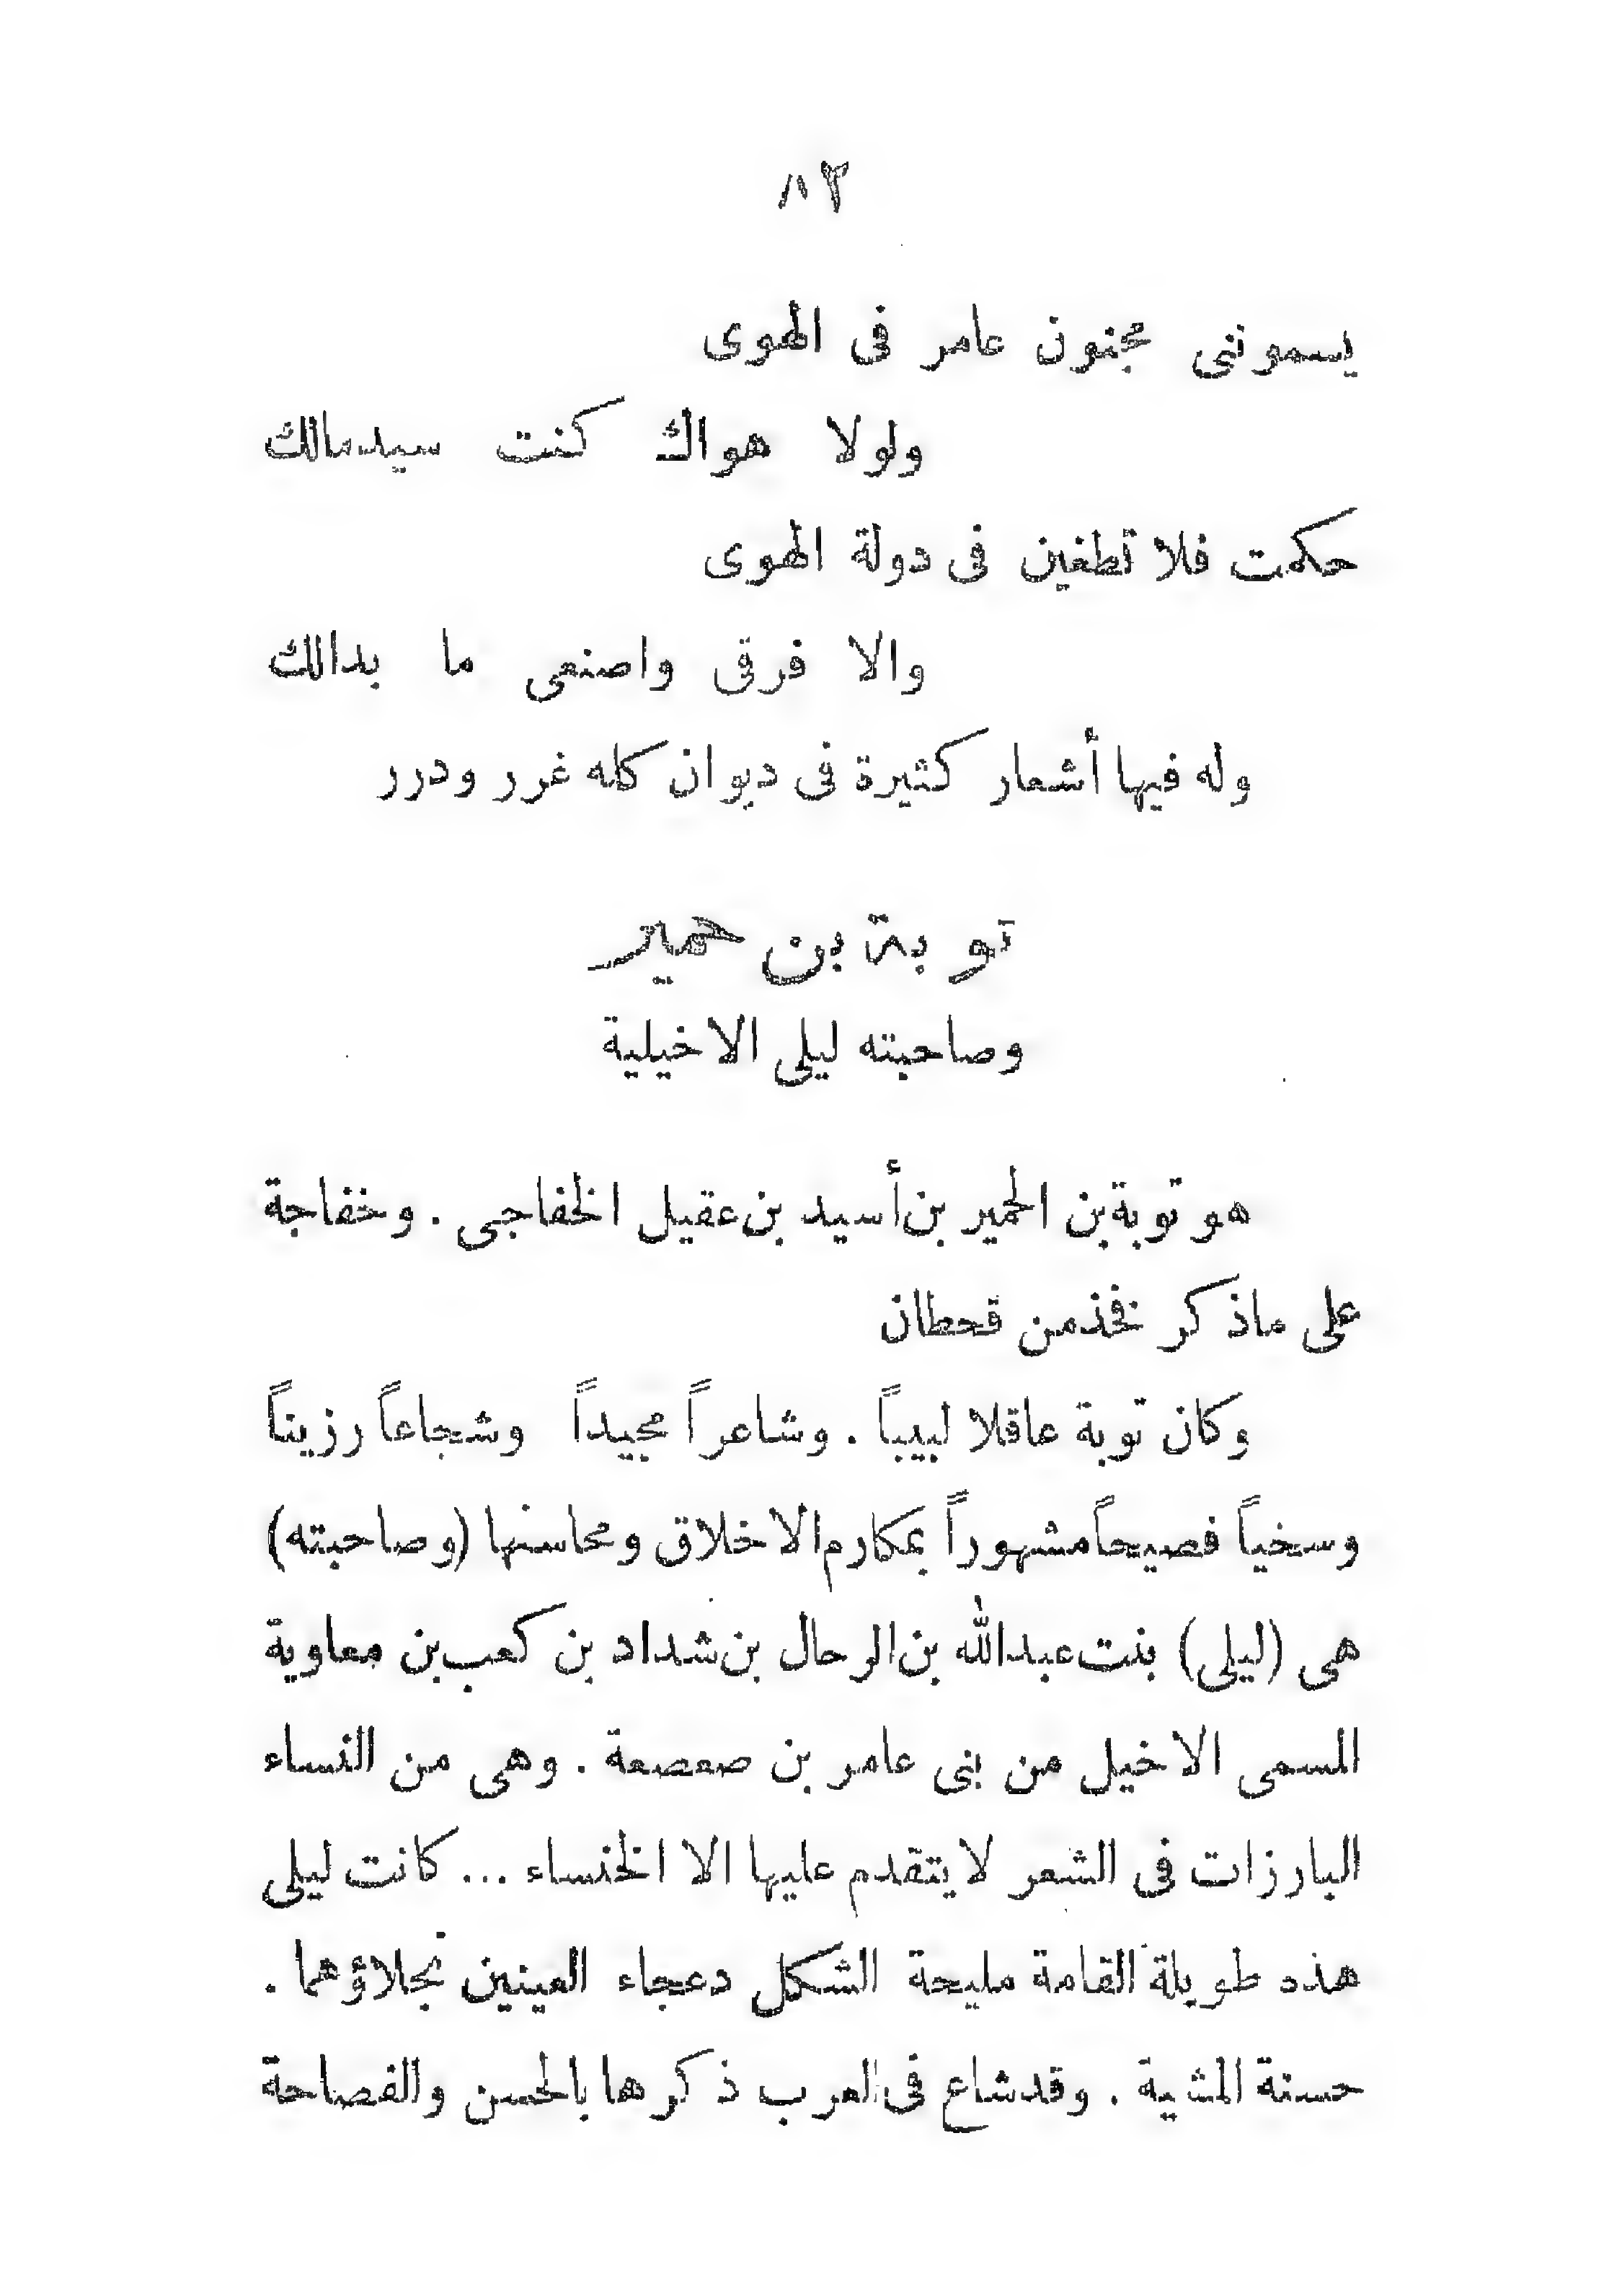 ٨٣
يسموننى مجنون عامر فى الهوى
ولولا هواك كنت سيد مالك
حكمت فلا تطغين فى دولة الهوى
والا فرقى واصنعى ما بدالك
وله فيها أشعار كثيرة فى ديوان كله غرر ودرر
توبة بن حمير
وصاحبته ليلى الاخيلية
هو توبة بن الحمير بن أسيد بن عقيل الخفاجى . وخفاجة
على ماذكر فخذ من قحطان
وكان توبة عاقلا لبيباً . وشاعراً مجيداً وشجاعاً رزيناً
وسخياً فصيحاً مشهوراً بمكارم الاخلاق ومحاسنها (وصاحبته)
هى (ليلى) بنت عبد الله بن الرحال بن شداد بن كعب بن معاوية
المسمى الاخيل من بنى عامر بن صعصعة . وهى من النساء
البارزات فى الشعر لا يتقدم عليها الا الخنساء ... كانت ليلى
هذه طويلة القامة مليحة الشكل دعجاء العينين نجلاؤهما .
حسنة المشية . وقد شاع فى العرب ذكرها بالحسن والفصاحة